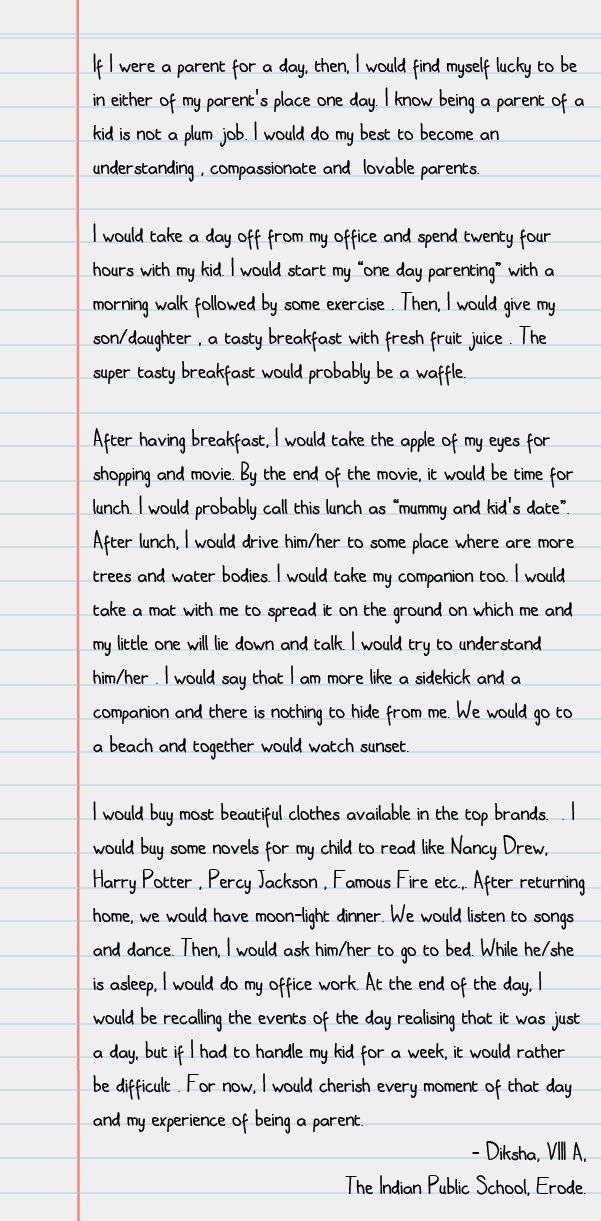 If I were a parent for a day, then, I would find myself lucky to be
in either of my parent's place one day. I know being a parent of a
kid is not a plum job. I would do my best to become an
understanding , compassionate and  lovable parents.
I would take a day off from my office and spend twenty four
hours with my kid. I would start my “one day parenting” with a
morning walk followed by some exercise . Then, I would give my
son/daughter , a tasty breakfast with fresh fruit juice . The
super tasty breakfast would probably be a waffle.
After having breakfast, I would take the apple of my eyes for
shopping and movie. By the end of the movie, it would be time for
lunch. I would probably call this lunch as “mummy and kid's date”.
After lunch, I would drive him/her to some place where are more
trees and water bodies. I would take my companion too. I would
take a mat with me to spread it on the ground on which me and
my little one will lie down and talk. I would try to understand
him/her . I would say that I am more like a sidekick and a
companion and there is nothing to hide from me. We would go to
a beach and together would watch sunset.
I would buy most beautiful clothes available in the top brands.  . I
would buy some novels for my child to read like Nancy Drew,
Harry Potter , Percy Jackson , Famous Fire etc.,. After returning
home, we would have moon-light dinner. We would listen to songs
and dance. Then, I would ask him/her to go to bed. While he/she
is asleep, I would do my office work. At the end of the day, I
would be recalling the events of the day realising that it was just
a day, but if I had to handle my kid for a week, it would rather
be difficult . For now, I would cherish every moment of that day
and my experience of being a parent.
- Diksha, VIII A,
The Indian Public School, Erode.